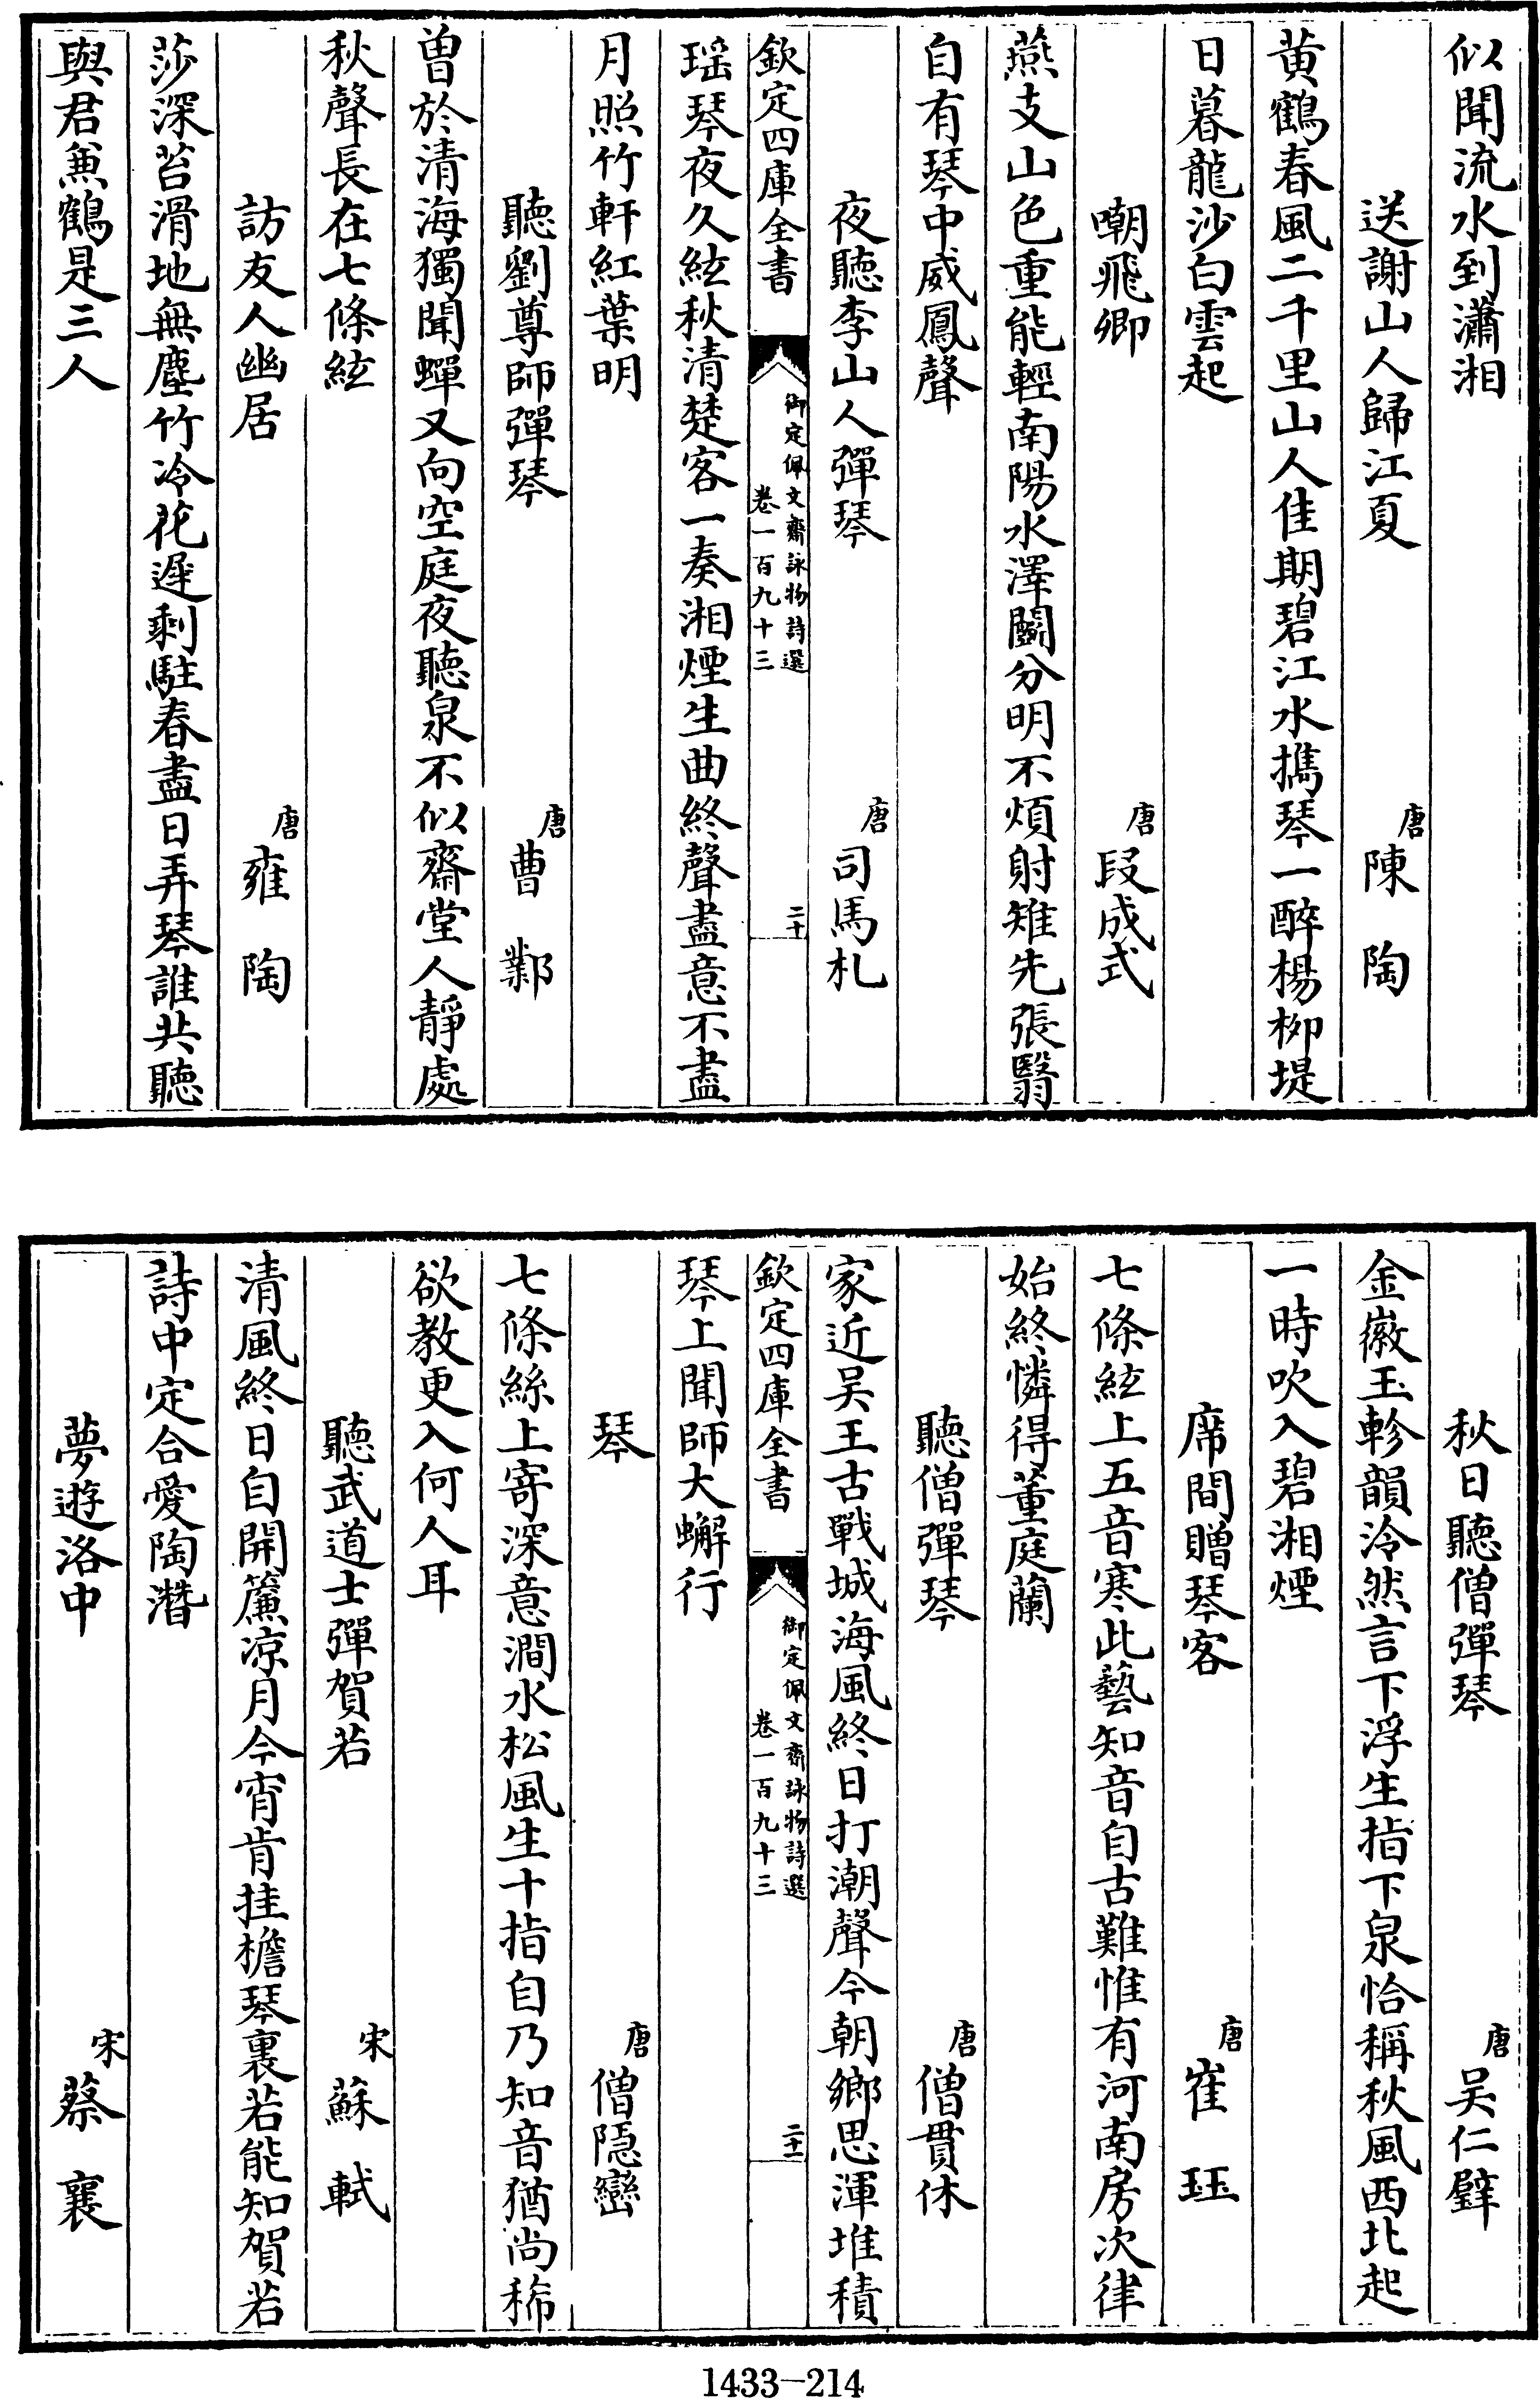 似聞流水到瀟湘
送謝山人歸江夏　唐陳陶
黄鶴春風二千里山人佳期碧江水攜琴一醉楊柳堤
日暮龍沙白雲起
嘲飛卿　唐段成式
燕支山色重能輕南陽水澤鬭分明不煩射雉先張翳
自有琴中威鳳聲
夜聽李山人彈琴　唐司馬札
欽定四庫全書
御定佩文齋詠物詩選
卷一百九十三
二十
瑶琴夜久絃秋清楚客一奏湘煙生曲終聲盡意不盡
月照竹軒紅葉明
聽劉尊師彈琴　唐曹鄴
曽於清海獨聞蟬又向空庭夜聽泉不似齋堂人靜處
秋聲長在七條絃
訪友人幽居　唐雍陶
莎深苔滑地無塵竹冷花遲剩駐春盡日弄琴誰共聽
與君兼鶴是三人
秋日聽僧彈琴　唐吴仁璧
金徽玉軫韻泠然言下浮生指下泉恰稱秋風西北起
一時吹入碧湘煙
席間贈琴客　唐崔珏
七條絃上五音寒此藝知音自古難惟有河南房次律
始終憐得董庭蘭
聽僧彈琴　唐僧貫休
家近吴王古戰城海風終日打潮聲今朝鄉思渾堆積
欽定四庫全書
御定佩文齋詠物詩選
卷一百九十三
二十一
琴上聞師大蠏行
琴　唐僧隠巒
七條絲上寄深意澗水松風生十指自乃知音猶尚稀
欲教更入何人耳
聽武道士彈賀若　宋蘇軾
清風終日自開簾凉月今宵肯挂檐琴裏若能知賀若
詩中定合愛陶潛
夢遊洛中　宋蔡襄
1433-214